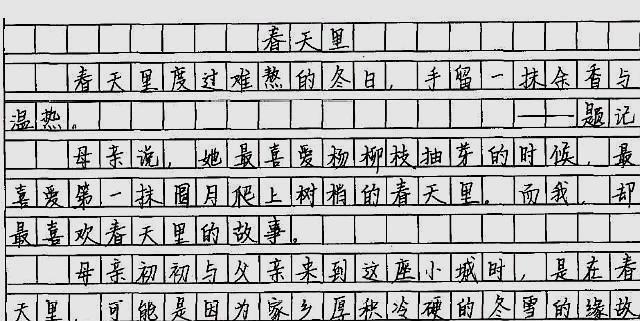 春天里
春天里度过难熬的冬日，手留一抹余香与
温热。 ——题记
母亲说，她最喜爱杨柳枝抽芽的时候，最
喜爱第一抹圆月爬上树梢的春天里。而我，却
最喜欢春天里的故事。
母亲初初与父亲来到这座小城时，是在春
天里，可能是因为家乡厚积冷硬的冬雪的缘故